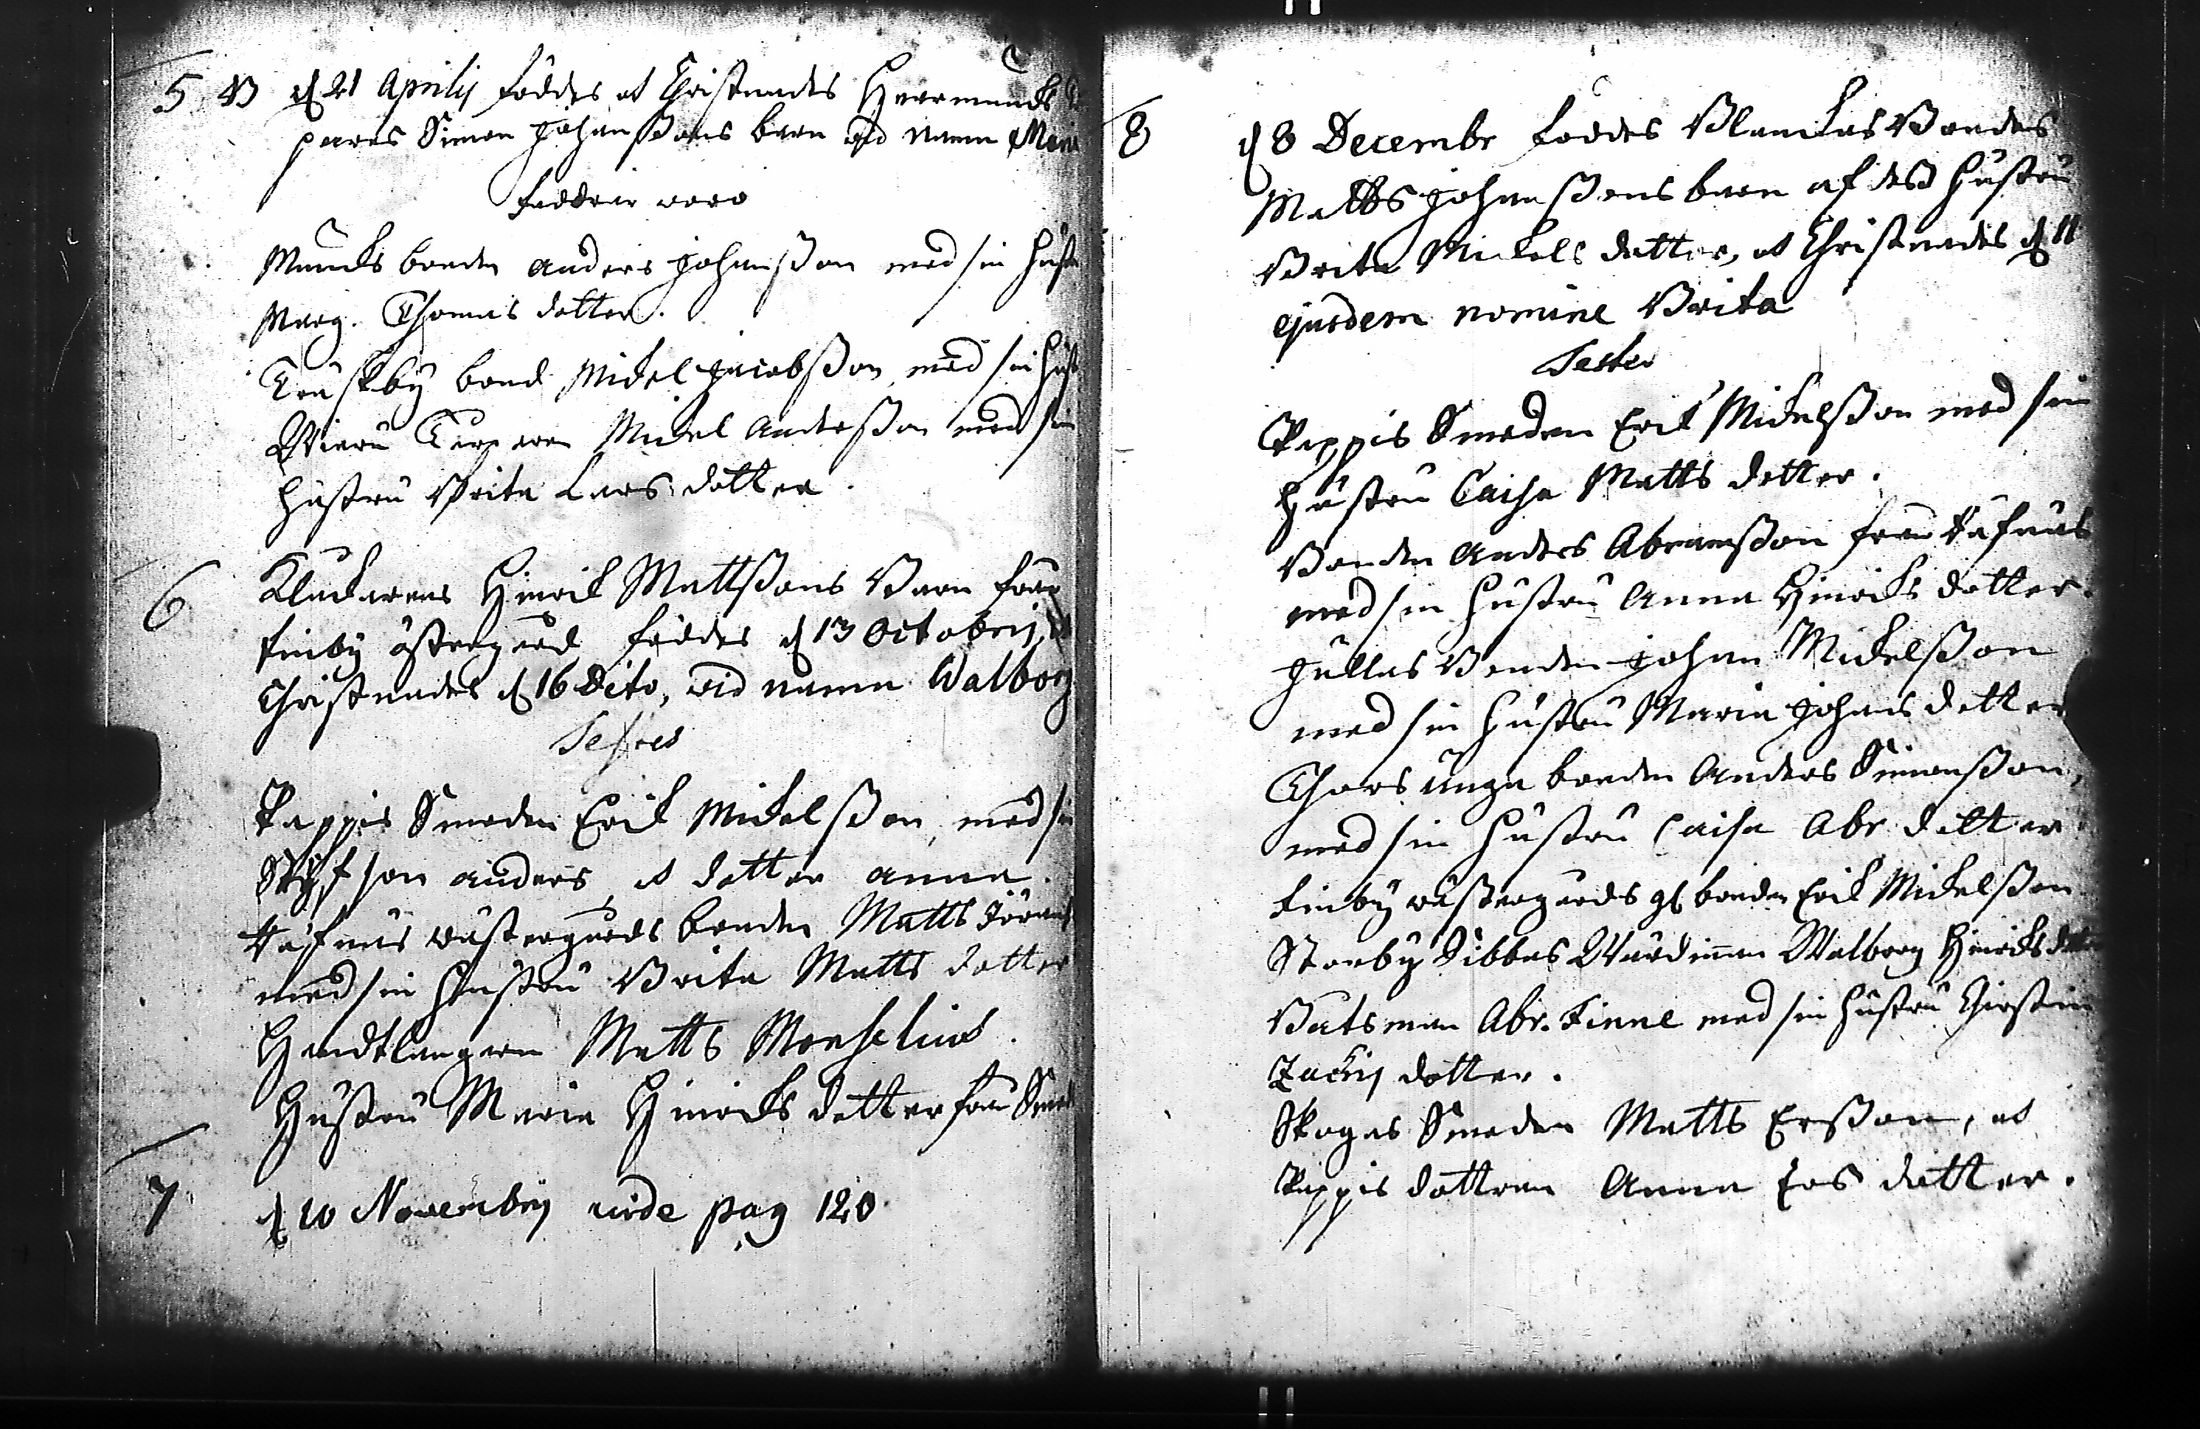 5 B d 21 Aprilij föddes et Christnades Hwarmunds
pares Simon Johanßons barn wid namn Mari
faddrar woro
Muncks bonden Anders Johanßon med sin hust
Marg. Thomas dotter.
Truskby bond Mickel Jacobßon, med sin hust
Mickel Anderßon med sin
hustru Brita Lars dotter.
6 Klockarens Hinrick Mattßons Barn från
Finby östergård föddes d 13 Octobris, et
Christnades d 16 Dito, wid namn Walborg
Testes
Pappis Smeden Erick Mickelßon, med sin
Styfson Anders et dotter Anna.
wästergårds bonden Matts Jörans
med sin hustru Brita Matts dotter
Handtlangaren Matts Monselius.
Hustru Maria Hinricks dotter från Smed
7 d 10 Novembrij vide pag 120
8 d 8 Decembr föddes Blanckas Bondes
Matts Johanßons barn af dess hustru
Brita Mickels dotter, et Christnades d 11
ejusdem nomine Brita
Testes
Pappis Smeden Erick Mickelßon med sin
hustru Caisa Matts dotter.
Bonden Anders Abramßon från
med sin hustru Anna Hinricks dotter.
Jullas Bonden Johan Mickelßon
med sin hustru Maria Johans dotter
Thors unga bonden Anders Simonßon,
med sin hustru Caisa Abr dotter
Finby wästergårds gl bonden Erick Mickelßon
Storby Sibbas Wärdinnan Walborg Hinricks dotter
Båtsman Abr. Finne med sin hustru Kirstin
Zachrij dotter.
Skogas Smeden Matts Erßon, et
Pappis dottren Anna Ers dotter.